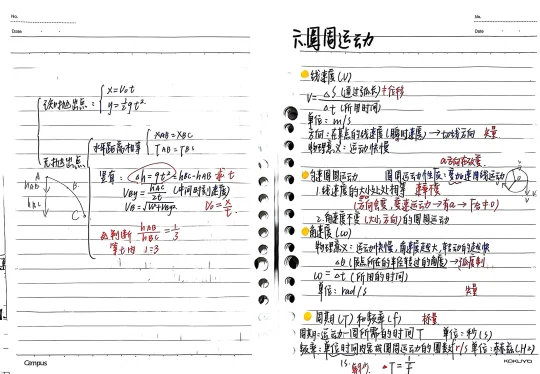 No.
Date
读抛出点:
x=V₀t
y=½gt²
无抛出点
水平距离相等
XAB=XBC
TAB=TBC
竖直:
Δh=gt²=hBC-hAB
求t
VBy=hAC/2t (中间时刻速度)
V₀=x/t
A
B
C
hAB
hBC
判断 hAB/hBC=1/3
1:3
Campus
No.
Date
六.圆周运动
线速度(V)
V=Δs(通过弧长)
Δt(所用时间)
单位:m/s
方向:在某点的线速度(瞬时速度)→切线方向 矢量
物理意义:运动快慢
匀速圆周运动
圆周运动性质:变加速曲线运动
1.线速度的大小处处相等 速率不变
(方向会变,变速运动→有a→F合≠0)
2.角速度不变(大小,方向)的圆周运动
角速度(ω)
物理意义:运动快慢,角速度越大,转动的越快
→弧度制
ω=Δt(所用的时间)
单位:rad/s
矢量
周期(T)和频率(f) 标量
周期:运动一周所需的时间T 单位:秒(s)
频率:单位时间内完成圆周运动的圈数 r/s 单位:赫兹(Hz)
T=1/f
KOKUYO